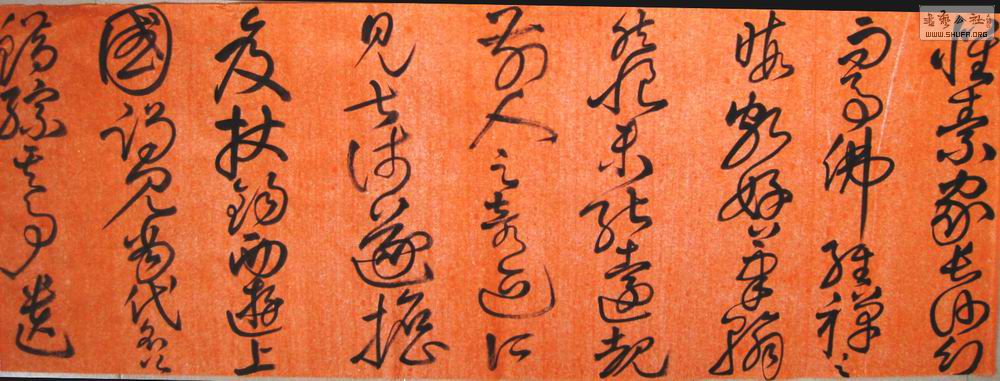 懷素家長沙幼
而事佛經禪之
暇頗好筆翰
然恨未能遠覩
前人之奇迹所
見甚淺遂擔
笈杖錫西遊上
國謁見當代名公
錯綜其事遺
書藝公社
WWW.SHUFA.ORG